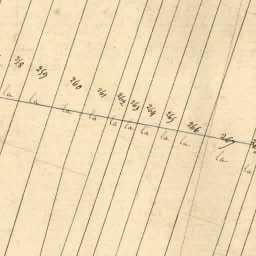 258 259 260 261 262 263 264 265 266 267
la la la la la la la la la la la